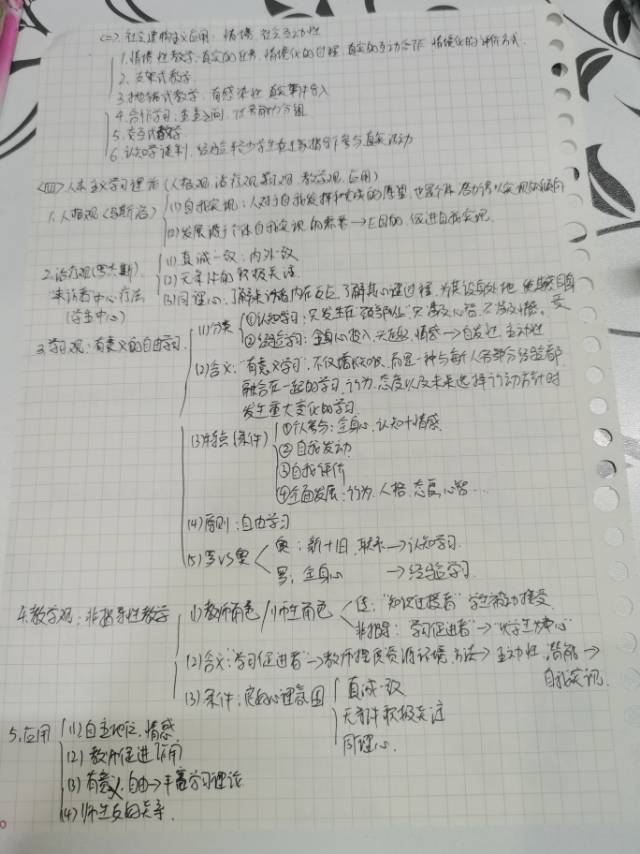 (二). 社会建构主义应用: 情境 社会互动性
1. 情境性教学: 真实的任务 情境化的过程 真实的互动合作 情境化的评价方式.
2. 支架式教学
3. 抛锚式教学: 有感染性 真实事件
4. 合作学习:
5. 交互式教学
6. 认知学徒制: 经验 学生在 指导下参与真实活动
<四> 人本主义学习理论 (人格观 治疗观 学习观 教学观 应用)
1. 人格观 (马斯洛)
(1) 自我实现: 人对于自我发挥和完成的愿望, 也是个体 潜力得以实现的倾向
(2) 发展源于个体自我实现的需要→教育目的: 促进自我实现.
2. 治疗观 (罗杰斯)
来访者中心疗法
(学生中心)
(1) 真诚一致: 内外一致
(2) 无条件的积极关注
(3) 同理心: 了解来访者内在 了解其心理过程, 为其设身处地
3. 学习观: 有意义的自由学习
(1) 分类
① 认知学习: 只发生在"颈部以上" 只涉及心智, 不涉及情感.
② 经验学习: 全身心投入 情感→自发性 主动性
(2) 含义: "有意义学习", 不仅增长知识, 而且一种与每人各部分经验都
融合在一起的学习. 行为, 态度以及未来选择行动方针时
发生重大变化的学习
(3) 特点 (条件)
① 个人参与: 全身心, 认知+情感
② 自我发动
③ 自我评价
④ 全面发展: 行为 人格 态度 心智…
(4) 原则: 自由学习
(5) 罗 VS 奥
奥: 新+旧 联系→认知学习.
罗: 全身心 →经验学习.
4. 教学观: 非指导性教学
(1) 教师角色/师生角色
传: "知识过授者" 学生被动接受.
非指导: "学习促进者"→"以学生为中心"
(2) 含义: "学习促进者"→教师提供资源 环境 方法→主动性 潜能→
自我实现.
(3) 条件: 良好心理氛围
真诚一致
无条件积极关注
同理心.
5. 应用
(1) 自主地位, 情感.
(2) 教师促进作用
(3) 有意义, 自由→丰富学习理论
(4) 师生 关系.